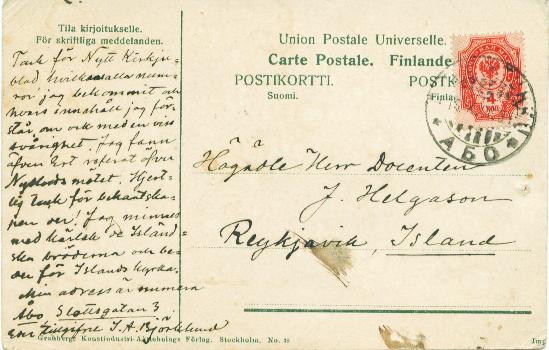 Tila kirjoitukselle.
För skriftliga meddelanden.
Tack för Nytt Kirkju-
blad hvilkas alla num-
ror jag bekommit och
hvars innehåll jag för-
står om ock med en viss
svårighet. Jag fann
äfven Ert referat öfver
mötet. Hjert-
lig tack för bekantska-
pen der! Jag minnes
med kärlek de Island-
ska bröderna och be-
der för Islands kyrka.
Min adress är numera
Åbo Slottsgatan 3
Eder tillgifne J. A. Björklund
Union Postale Universelle.
Carte Postale. Finlande
POSTIKORTTI. POSTK
Suomi. Finlan
4
КОП
ÅBO
АБО
Högädle Herr Docenten
J. Helgason
Reykjavik, Island
Granbergs Konstindustri-Aktiebolags Förlag. Stockholm. No.
Imp